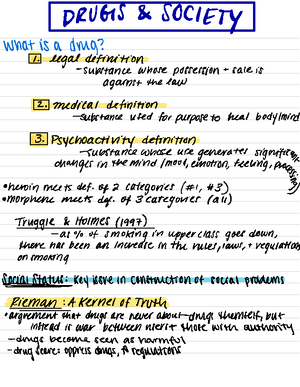 DRUGS & SOCIETY
What is a drug?
1. legal definition
- substance whose possession + sale is
against the law
2. medical definition
- substance used for purpose to heal body/mind
3. Psychoactivity definition
- substance whose use generates significant
changes in the mind (mood, emotion, feeling, processing)
• heroin meets def. of 2 categories (#1, #3)
• morphene meets def. of 3 categories (all)
Truggle & Holmes (1997)
- as % of smoking in upper class goes down,
there has been an increase in the rules, laws, + regulations
on smoking
Social Status: key issue in construction of social problems
Rieman: A Kernel of Truth
• arguement that drugs are never about drugs themself, but
instead is war between user + those with authority
- drugs become seen as harmful
- drug scare: oppress drugs, ↑ regulations